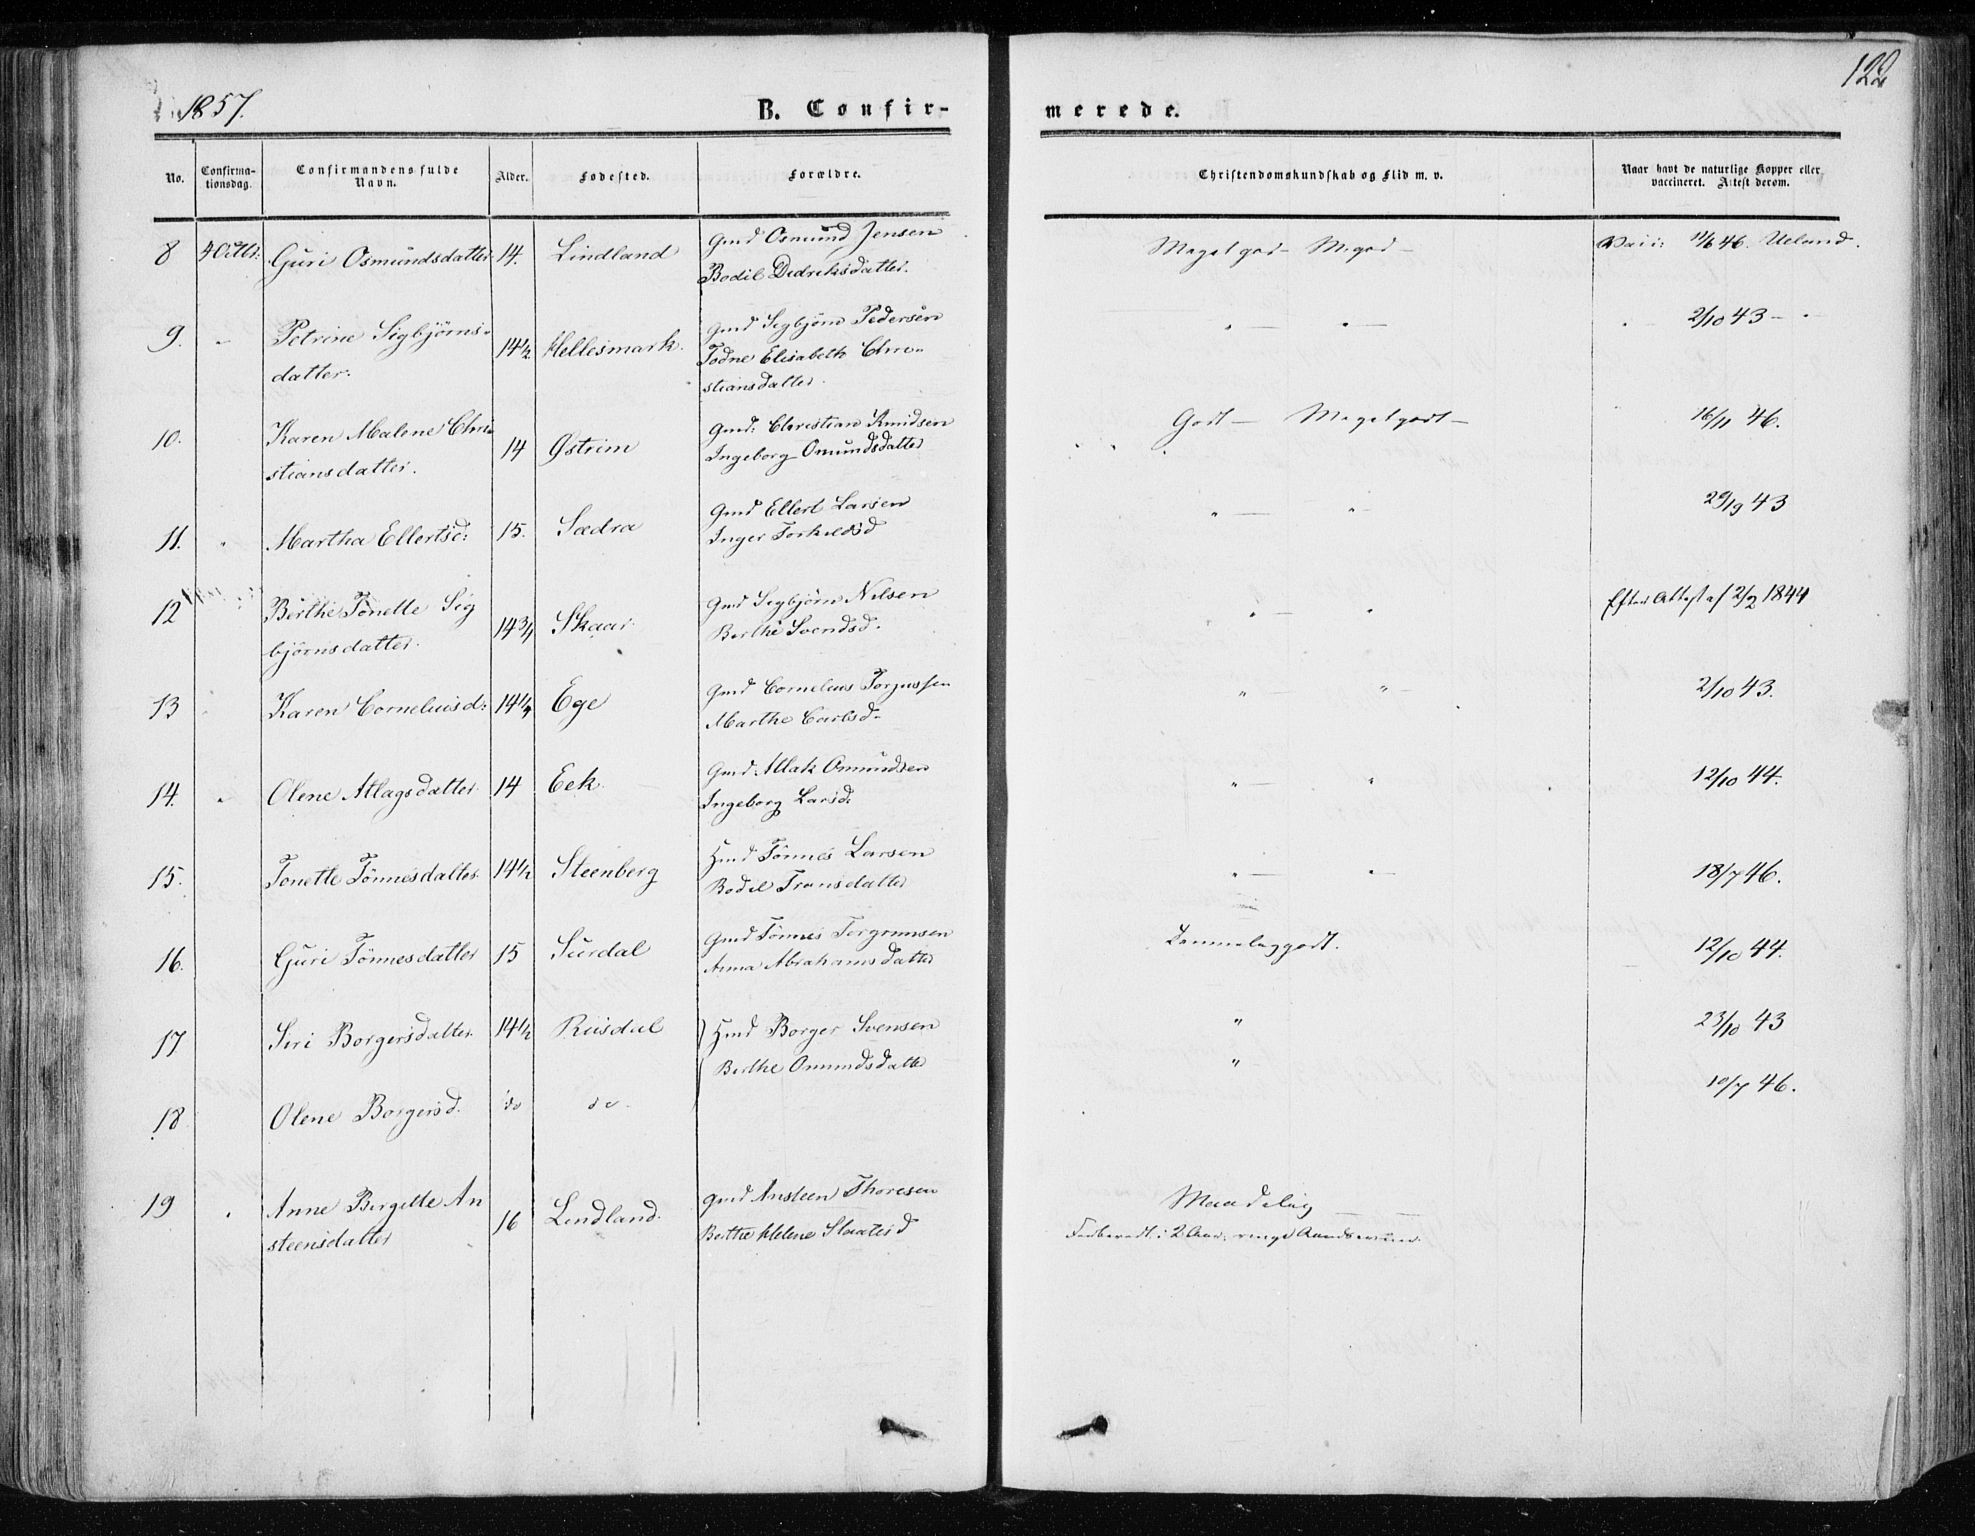 1857.
B. Confir-
merede.
128
No.
Confirma-
tionsdag.
Confirmandens fulde
Navn.
Alder.
Fødested.
Forældre.
Christendomskundskab og Flid m. v.
Naar havt de naturlige Kopper eller
vaccineret. Attest derom.
8 4 Octbr: Guri Osmundsdatter 14. Lindland
Gmd Osmund Jensen
Bodil Dedreksdatter.
Meget god - M. god - Vacc: 11/6 46. Ueland.
9. - Petrine Sigbjørns-
datter. 14 1/2 Hellesmark.
Gmd Sigbjørn Pedersen
Todne Elisabeth Chri-
stiansdatter.
" - " - 2/10 43 - "
10. Karen Malene Chri-
stiansdatter. 14 Østrem
Gmd: Christian Knudsen
Ingeborg Omundsdatter
Godt - Meget godt - 16/11 46.
11. " Martha Ellertsd: 15. Sædra
Gmd Ellert Larsen
Inger Torkildsd
" - " - 43
12 Berthe Tonette Sig
bjørnsdatter. 14 3/4 Skaar
Gmd Sigbjørn Nilsen
Berthe Svendsd.
" - " Efter Attest af 2/2 1844
13 Karen Corneliusd: 14 1/4 Ege
Gmd Cornelius Torjussen
Marthe Carlsd.
" - " - 2/10 43.
14. " Olene Atlagsdatter 14 Eek.
Gmd. Atlak Omundsen
Ingeborg Larsd:
" - " 12/10 44.
15. Tonette Tönnesdatter 14 1/2 Steenberg
Hmd Tönnes Larsen
Bodil Tronsdatter
" - " - 18/7 46.
16. Guri Tönnesdatter 15 Surdal
Gmd Tönnes Torgrimsen
Anna Abrahamsdatter
Temmelig godt. 12/10 44.
17 Siri Borgersdatter. 14 1/2 Rusdal
Hmd Borger Svensen
Berthe Omundsdatter
" 23/10 43
18 Olene Borgersd. do do.
" 10/7 46.
19 " Anne Bergitte An
steensdatter 16 Lindland.
Gmd Ansteen Thoresen
Berthe Helene Slaatesd
Maadelig
Forberedt i 2 Aar. ringe